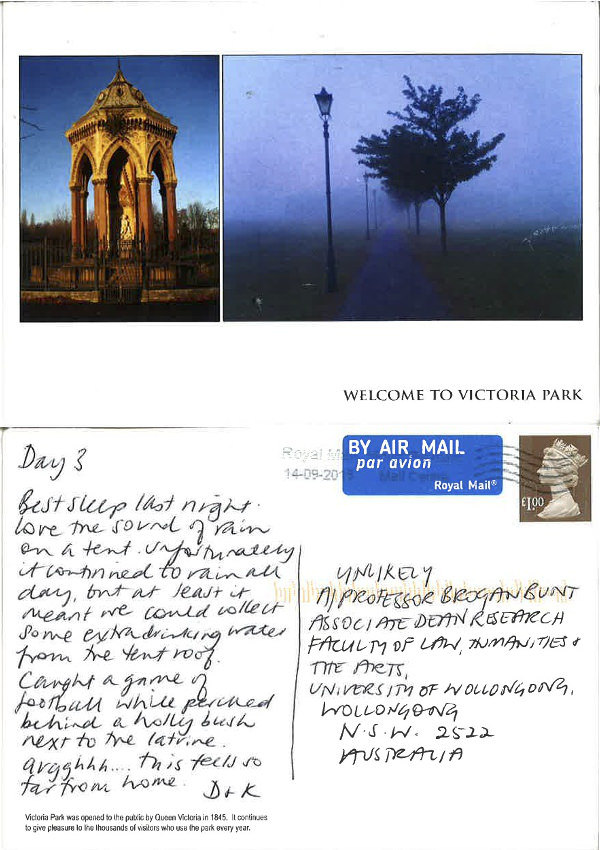 WELCOME TO VICTORIA PARK
Day 3
Best sleep last night.
Love the sound of rain
on a tent. Unfortunately
it continued to rain all
day, but at least it
meant we could collect
some extra drinking water
from the tent roof.
Caught a game of
football while perched
behind a holly bush
next to the latrine.
Argghhh.... this feels so
far from home.
D+K
Victoria Park was opened to the public by Queen Victoria in 1845. It continues
to give pleasure to the thousands of visitors who use the park every year.
Royal
14-09-201
Mail
BY AIR MAIL
par avion
Royal Mail®
£1.00
UNLIKELY
A/PROFESSOR BROGAN BUNT
ASSOCIATE DEAN RESEARCH
FACULTY OF LAW, HUMANITIES &
THE ARTS,
UNIVERSITY OF WOLLONGONG,
WOLLONGONG
N.S.W. 2522
AUSTRALIA